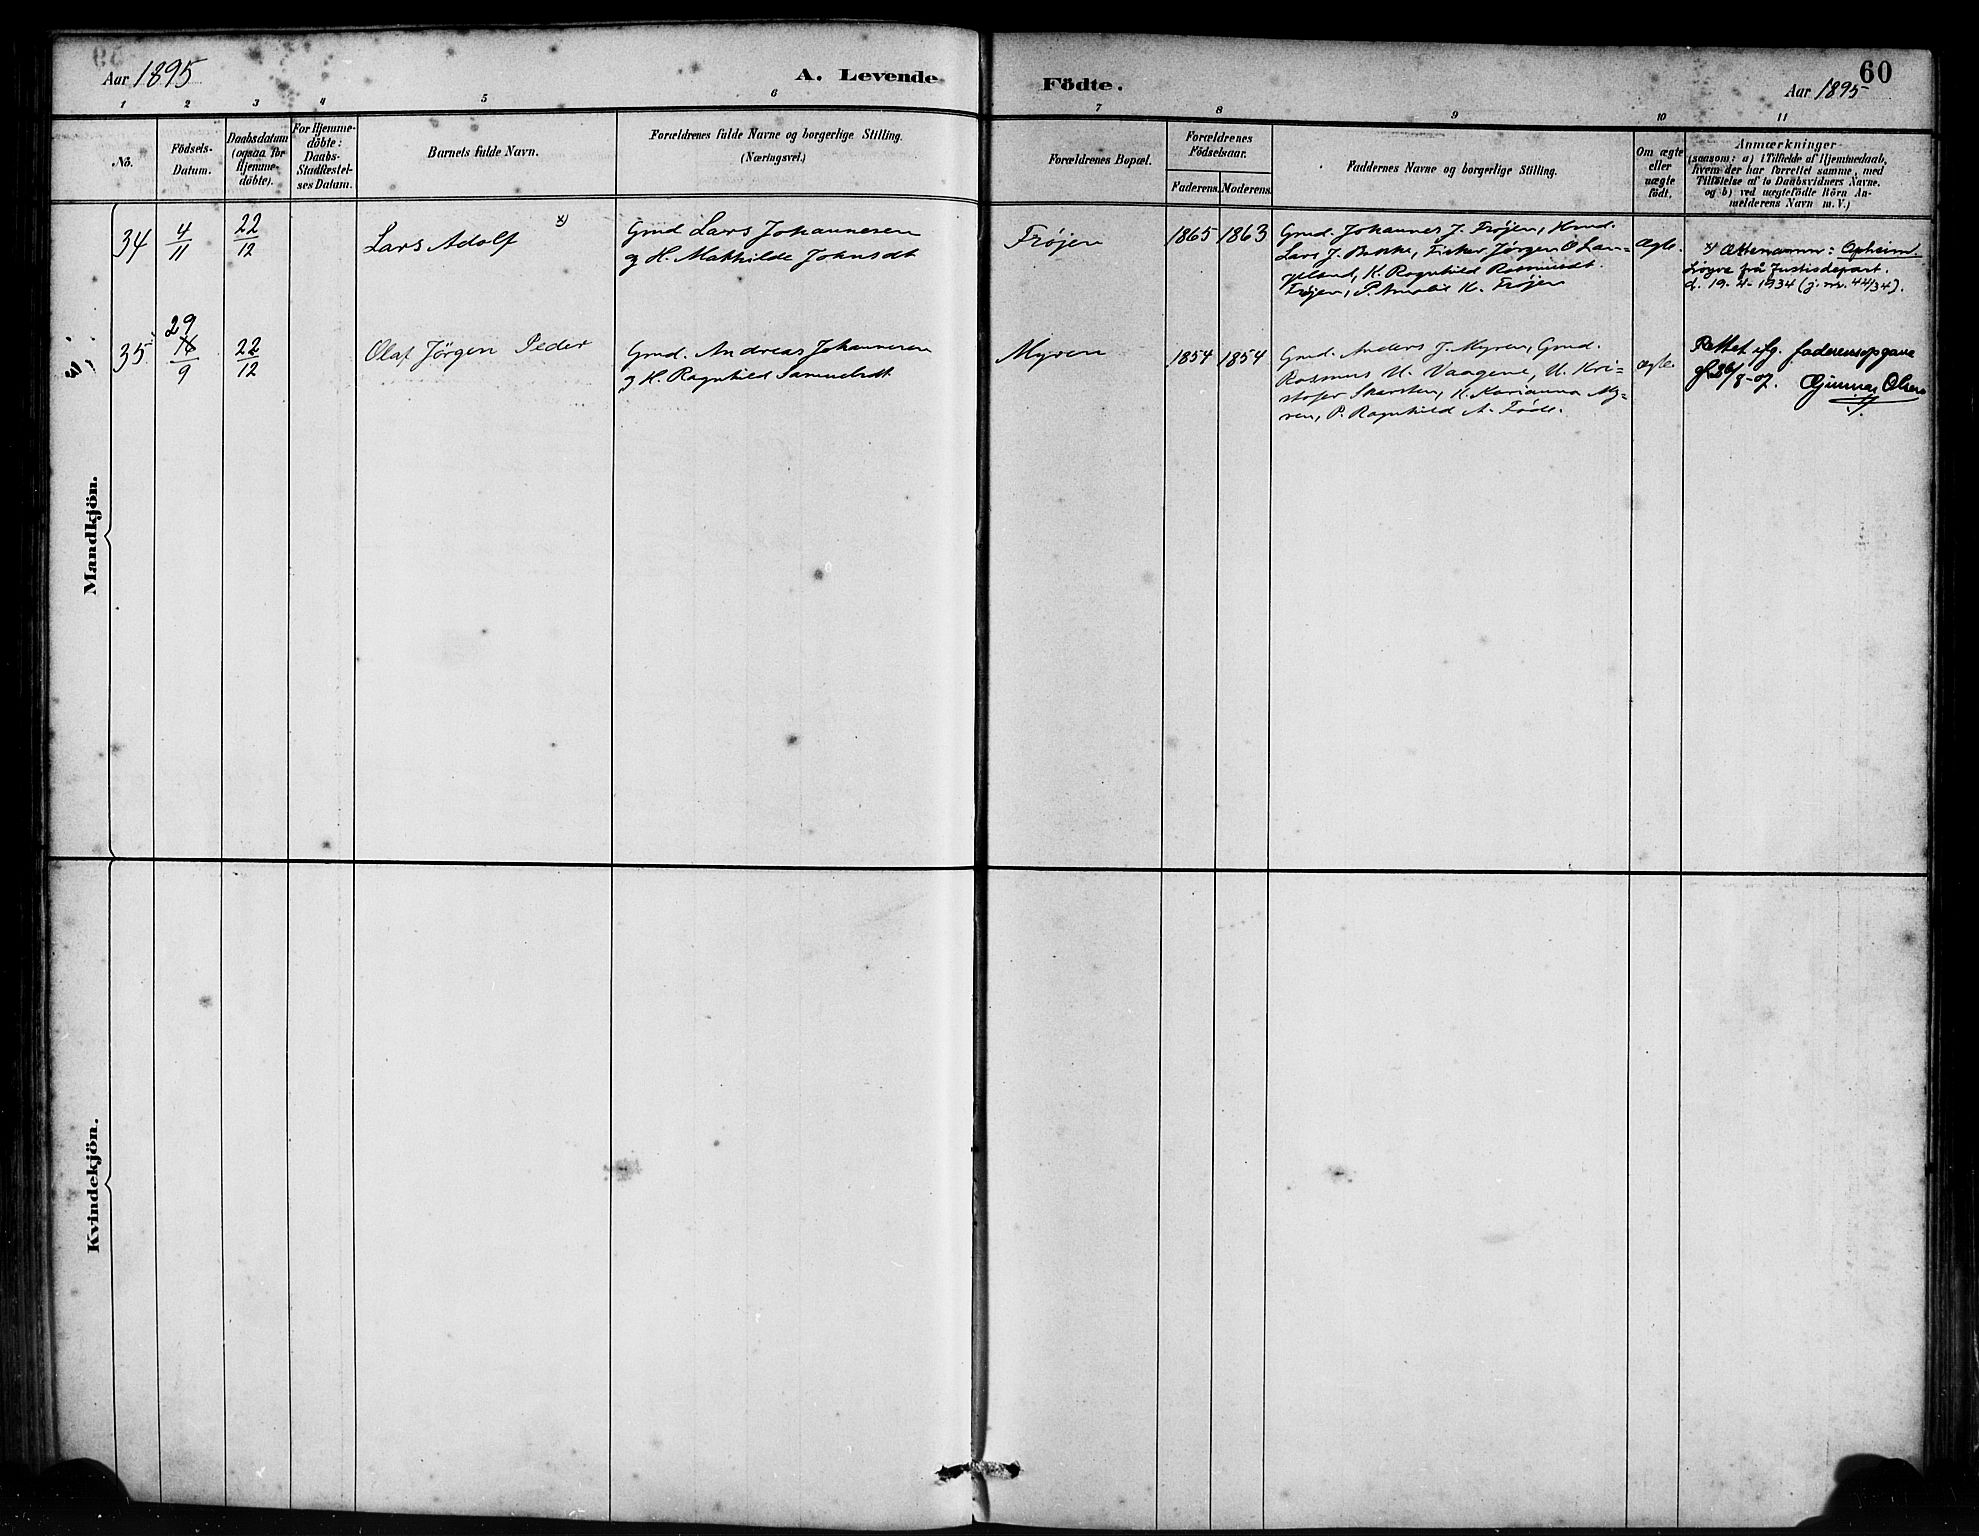 Aar 1895
A. Levende
Födte.
Aar 1895
60
1 2 3 4 5 6 7 8 9 10 11
No.
Födsels-
Datum.
Daabsdatum
(ogsaa for
Hjemme-
döbte).
For Hjemme-
döbte:
Daabs-
Stadfæstel-
ses Datum.
Barnets fulde Navn.
Forældrenes fulde Navne og borgerlige Stilling.
(Næringsvei.)
Forældrenes Bopæl.
Forældrenes
Födselsaar.
Faderens. Moderens.
Faddernes Navne og borgerlige Stilling.
Om ægte
eller
uægte
födt.
Anmærkninger
(saasom: a) i Tilfælde af Hjemmedaab,
hvem der har forrettet samme, med
Tilföielse af to Daabsvidners Navne,
og b) ved uægtefödte Börn An-
melderens Navn m. V.)
Mandkjön.
34
4/11
22/12
Lars Adolf x)
Gmd Lars Johannesen
og H. Mathilde Johnsdt
Frøjen
1865 1863
Gmd. Johannes J. Frøjen,
Lars J. Fisker Jørgen O Lan-
geland, K. Ragnhild Rasmusdt.
Frøjen, P. K. Frøjen
Ægte.
x) Ættenamn: Opheim.
Løyve frå Justisdepart.
d. 19-4-1934 (j. nr. 44/34).
35
29
16/9
22/12
Olaf Jörgen Peder
Gmd. Andreas Johannesen
og H. Ragnhild Samuelsdt
Myren
1854 1854
Gmd. Anders J. Myren, Gmd.
Rasmus Vaagene, U. Kri-
stofer Skarsten, K. Karianna My-
ren, P. Ragnhild A. Føde.
Ægte
Rettet ifg. faderens opgave
26/8-07. Gunnar Olsen
Kvindekjön.